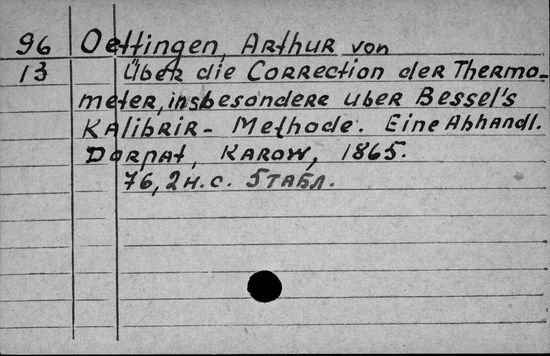 96 Oettingen, Arthur von
13 Über die Correction der Thermo-
meter, insbesondere uber Bessel's
Kalibrir- Methode. Eine Abhandl.
Dorpat, Karow, 1865.
76, 2 н. с. 5 табл.